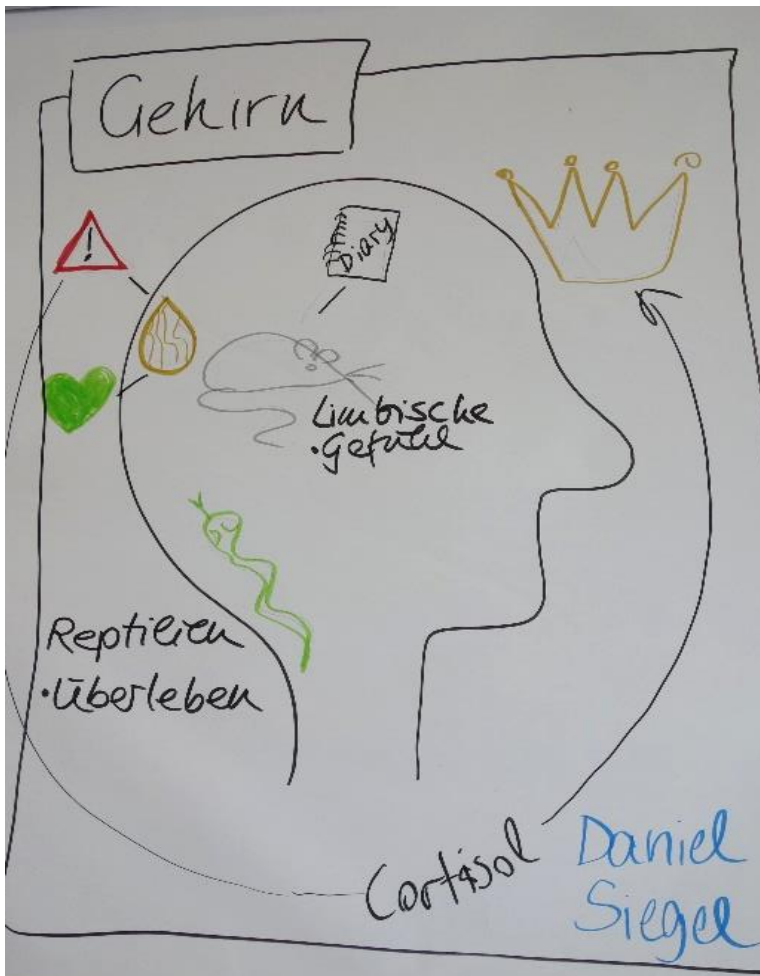 Gehirn
!
Diary
Limbische
• Gefühl
Reptilien
• Überleben
Cortisol
Daniel
Siegel